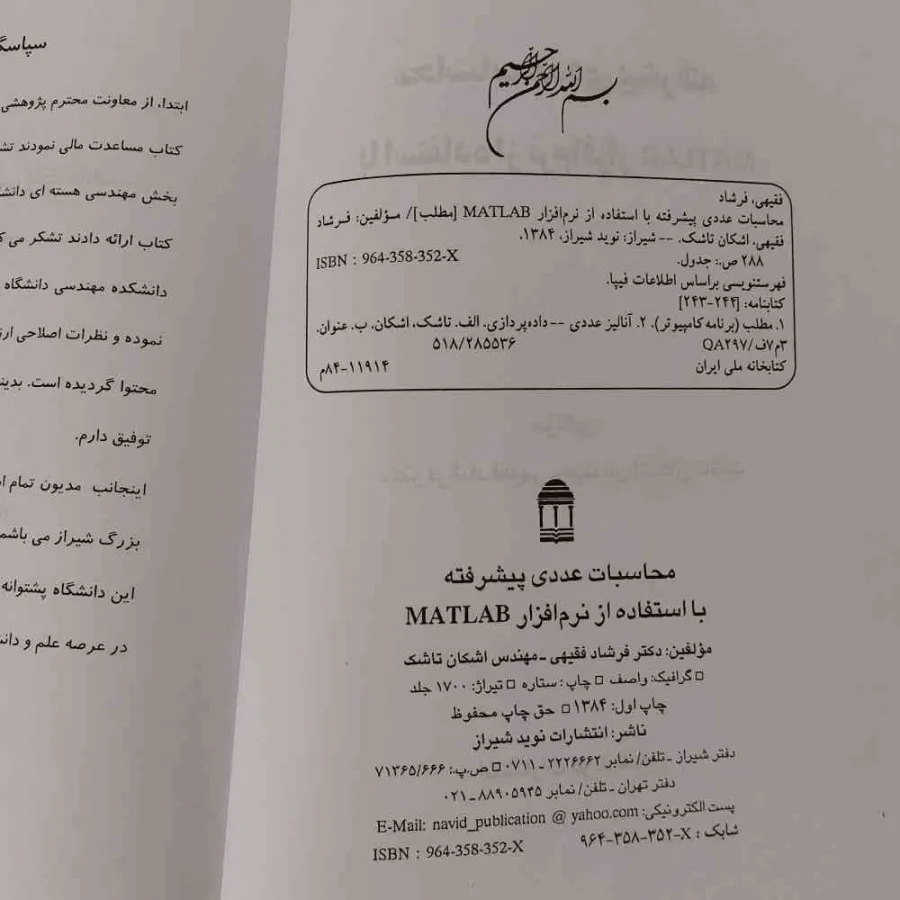 بسم الله الرحمن الرحیم
فقیهی، فرشاد
محاسبات عددی پیشرفته با استفاده از نرم‌افزار MATLAB [مطلب]/ مؤلفین: فرشاد
فقیهی، اشکان تاشک. -- شیراز: نوید شیراز، ۱۳۸۴.
۲۸۸ ص.: جدول. ISBN : 964-358-352-X
فهرستنویسی براساس اطلاعات فیپا.
کتابنامه: [۲۴۴-۲۴۳]
۱. مطلب (برنامه کامپیوتر). ۲. آنالیز عددی -- داده‌پردازی. الف. تاشک، اشکان. ب. عنوان.
۳م۷ف/QA۲۹۷ ۵۱۸/۲۸۵۵۳۶
کتابخانه ملی ایران ۸۴-۱۱۹۱۴م
محاسبات عددی پیشرفته
با استفاده از نرم‌افزار MATLAB
مؤلفین: دکتر فرشاد فقیهی ـ مهندس اشکان تاشک
□ گرافیک: واصف □ چاپ: ستاره □ تیراژ: ۱۷۰۰ جلد
چاپ اول: ۱۳۸۴ □ حق چاپ محفوظ
ناشر: انتشارات نوید شیراز
دفتر شیراز ـ تلفن/ نمابر ۲۲۲۶۶۶۲ ـ ۰۷۱۱ □ ص.پ.: ۷۱۳۶۵/۶۶۶
دفتر تهران ـ تلفن/ نمابر ۸۸۹۰۵۹۴۵ ـ ۰۲۱
پست الکترونیکی: E-Mail: navid_publication @ yahoo.com
شابک : X-۳۵۲-۳۵۸-۹۶۴ ISBN : 964-358-352-X
ابتدا، از معاونت محترم پژوهشی
کتاب مساعدت مالی نمودند
بخش مهندسی هسته ای
کتاب ارائه دادند تشکر می
دانشکده مهندسی دانشگاه
نموده و نظرات اصلاحی
محتوا گردیده است.
توفیق دارم.
اینجانب مدیون تمام
بزرگ شیراز می
این دانشگاه پشتوانه
در عرصه علم و